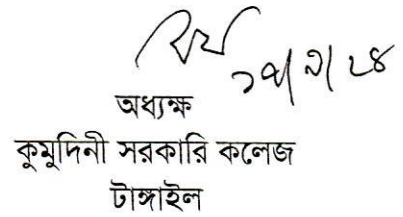 ১৭/৯/২৪
অধ্যক্ষ
কুমুদিনী সরকারি কলেজ
টাঙ্গাইল